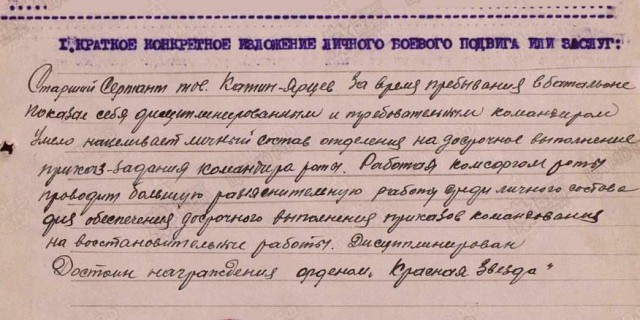 I. КРАТКОЕ КОНКРЕТНОЕ ИЗЛОЖЕНИЕ ЛИЧНОГО БОЕВОГО ПОДВИГА ИЛИ ЗАСЛУГ:
Старший Сержант тов. Катин-Ярцев За время пребывания в батальоне
показал себя дисциплинированным и требовательным командиром
Умело нацеливает личный состав отделения на досрочное выполнение
приказ-задания командира роты. Работая комсоргом роты
проводит большую разъяснительную работу среди личного состава
для обеспечения досрочного выполнения приказов командования
на восстановительные работы. Дисциплинирован
Достоин награждения орденом „Красная Звезда"